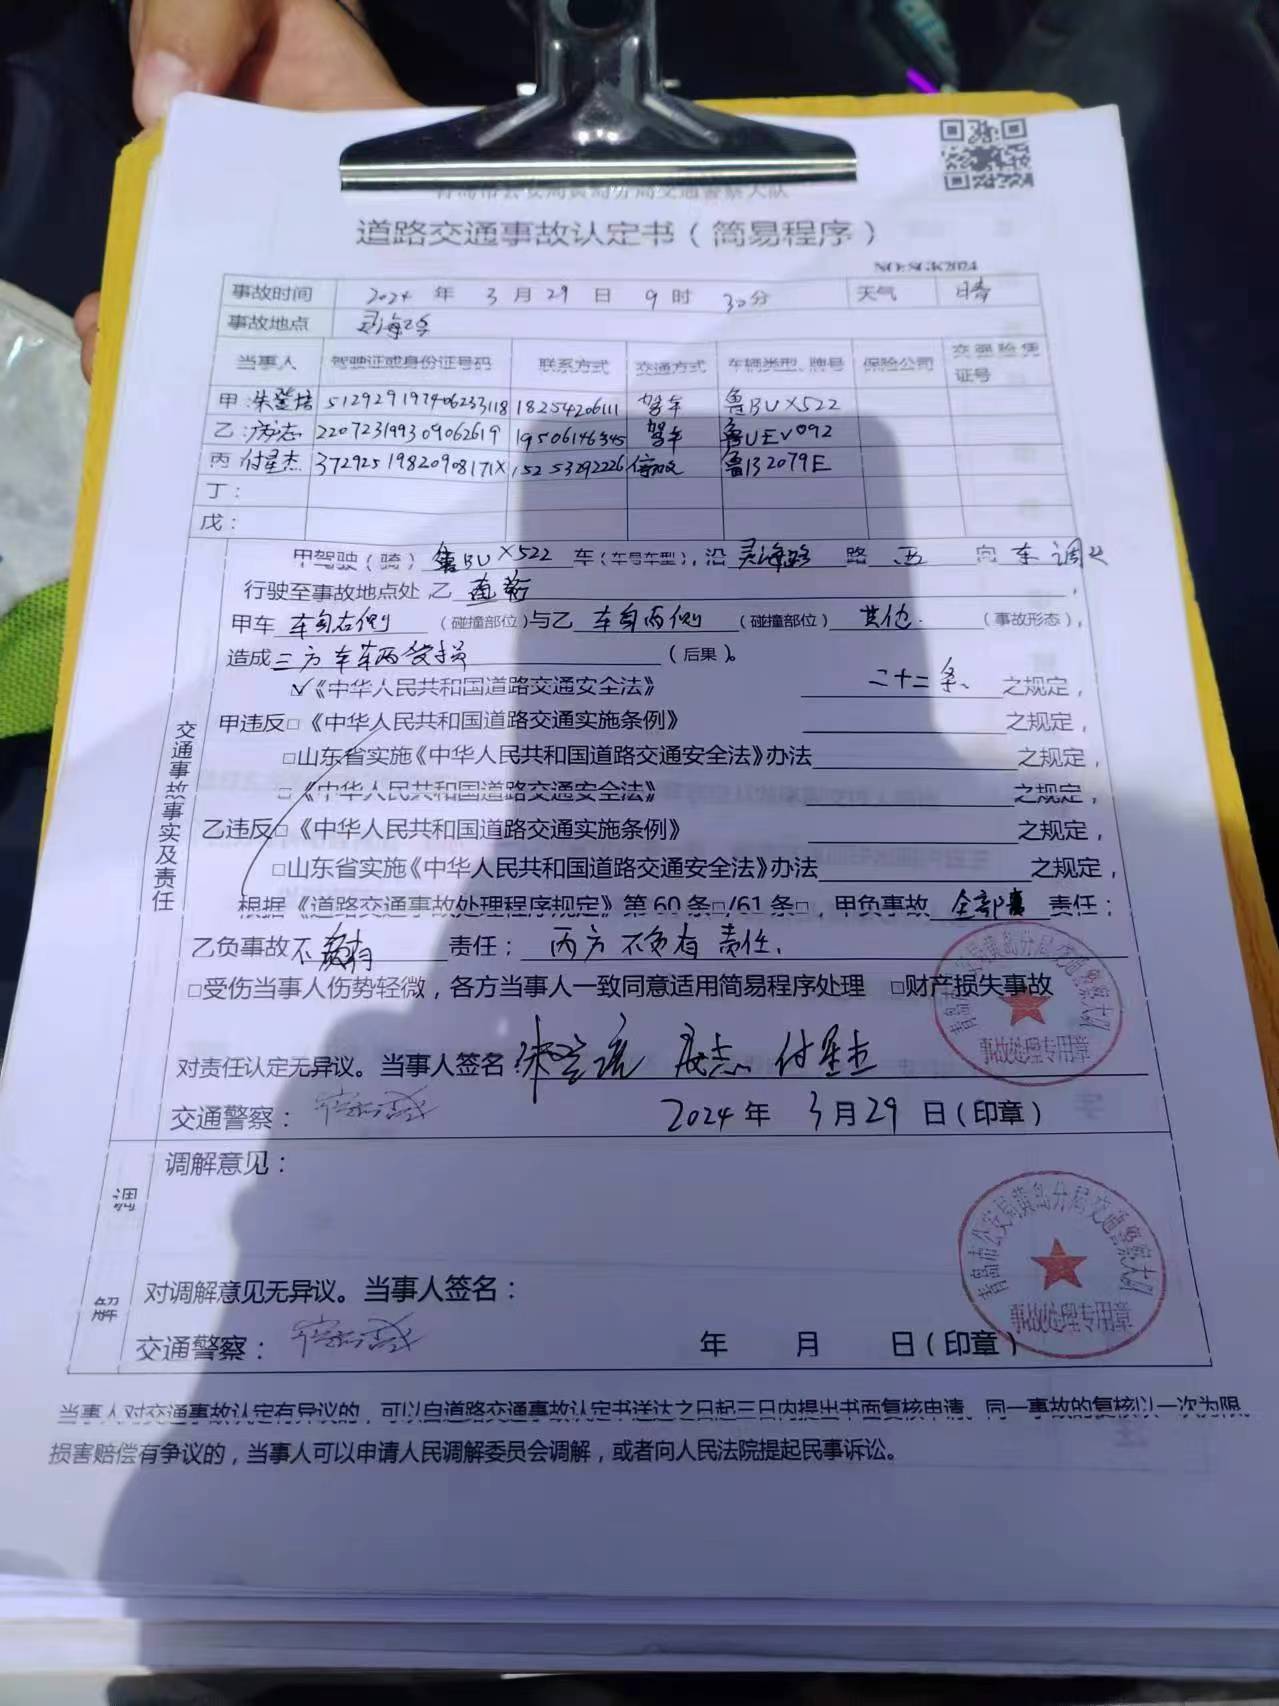 青岛市公安局黄岛分局交通警察大队
道路交通事故认定书（简易程序）
NO:SGK2024
事故时间 2024 年 3 月 29 日 9 时 30分 天气 晴
事故地点 灵海路
当事人 驾驶证或身份证号码 联系方式 交通方式 车辆类型、牌号 保险公司 交强险凭证号
甲：朱登 512929197406233118 18254206111 驾车 鲁BUX522
乙： 志 220723199309062619 19506146345 驾车 鲁UEV092
丙 付星杰 37292519820908171X 15253292226 停放 鲁B2079E
丁：
戊：
甲驾驶（骑）鲁BUX522 车（车号车型），沿 灵海路 路 西 向 车 调头
行驶至事故地点处，乙 直行 ，
甲车 车身右侧 （碰撞部位）与乙 车身两侧 （碰撞部位） 其他. （事故形态），
造成 三方车车两受损 （后果）。
☑《中华人民共和国道路交通安全法》 二十二条、 之规定，
甲违反□《中华人民共和国道路交通实施条例》 之规定，
□山东省实施《中华人民共和国道路交通安全法》办法 之规定，
□《中华人民共和国道路交通安全法》 之规定，
乙违反□《中华人民共和国道路交通实施条例》 之规定，
□山东省实施《中华人民共和国道路交通安全法》办法 之规定，
根据《道路交通事故处理程序规定》第60条□/61条□，甲负事故 全部 责任；
乙负事故 不负有 责任； 丙方不负有责任.
□受伤当事人伤势轻微，各方当事人一致同意适用简易程序处理 □财产损失事故
对责任认定无异议。当事人签名： 付星杰
交通警察： 2024 年 3 月 29 日（印章）
交通事故事实及责任
青岛市公安局黄岛分局交通警察大队
事故处理专用章
调解
调解意见：
对调解意见无异议。当事人签名：
交通警察： 年 月 日（印章）
青岛市公安局黄岛分局交通警察大队
事故处理专用章
当事人对交通事故认定有异议的，可以自道路交通事故认定书送达之日起三日内提出书面复核申请。同一事故的复核以一次为限。
损害赔偿有争议的，当事人可以申请人民调解委员会调解，或者向人民法院提起民事诉讼。